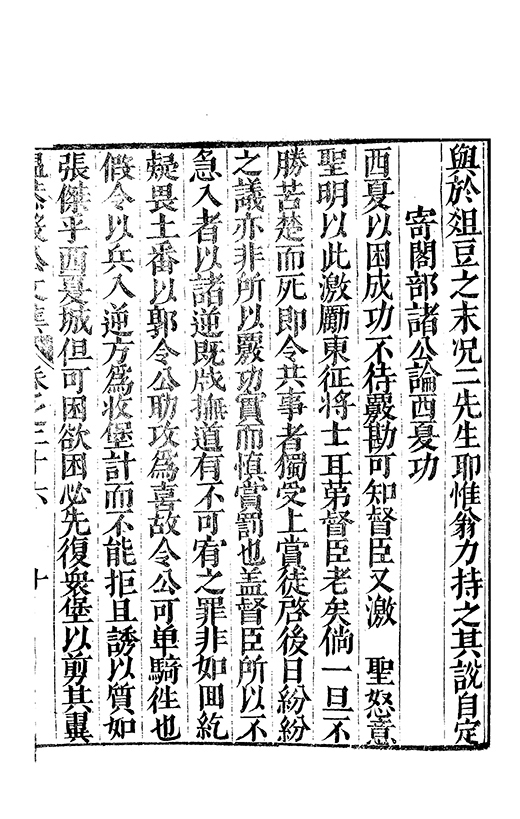 與於爼豆之末况二先生耶惟翁力持之其說自定
寄閣部諸公論西夏功
西夏以困成功不待覈勘可知督臣又激　聖怒意
聖明以此激勵東征将士耳第督臣老矣倘一旦不
勝苦楚而死即令共事者獨受上賞徒啓後日紛紛
之議亦非所以覈功實而慎賞罰也盖督臣所以不
急入者以諸逆既戕撫道有不可宥之罪非如回紇
疑畏土番以郭令公助攻為喜故令公可单騎徃也
假令以兵入逆方為收堡計而不能拒且誘以質如
張傑乎西夏城但可困欲困必先復衆堡以剪其翼
文集 卷之二十六 十